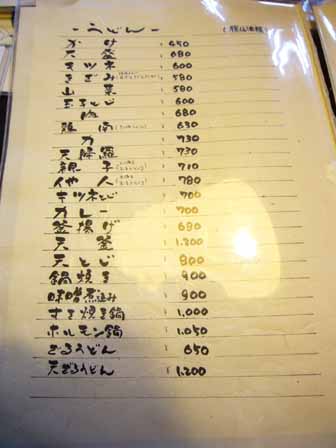 －うどん－
かけ ¥ 450
天釜 ¥ 680
キツネ ¥ 600
きざみ ¥ 580
山菜 ¥ 580
玉子とじ ¥ 600
肉 ¥ 680
鶏南 ¥ 630
力 ¥ 730
天婦羅 ¥ 730
親子 ¥ 710
他人 ¥ 780
キツネとじ ¥ 700
カレー ¥ 700
釜揚げ ¥ 680
天釜 ¥ 1.200
天とじ ¥ 800
鍋焼き ¥ 900
味噌煮込み ¥ 900
すき焼き鍋 ¥ 1.000
ホルモン鍋 ¥ 1.050
ざるうどん ¥ 650
天ざるうどん ¥ 1.200